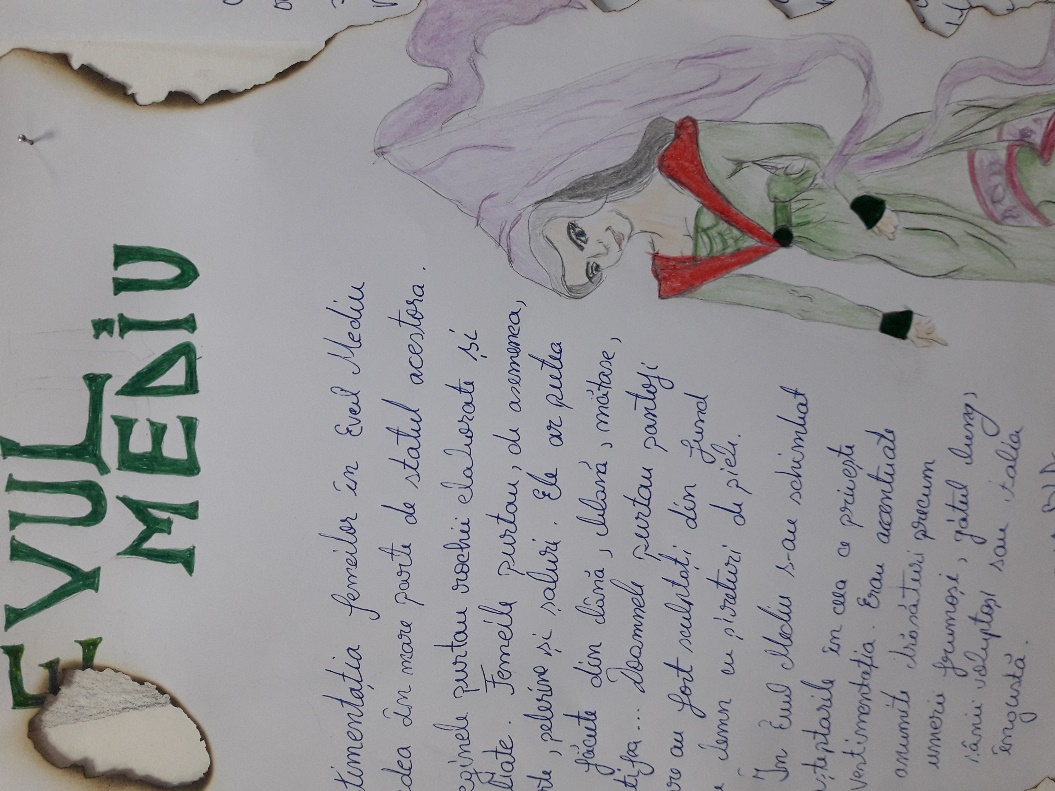 EVUL
MEDIU
timentația femeilor în Evul Mediu
dea în mare parte de statul acestora.
eginele purtau rochii elaborate și
liate. Femeile purtau, de asemenea,
rte, pelerine și șaluri. Ele ar putea
făcute din lână, blană, mătase,
tifea... Doamnele purtau pantofi
au fost sculptați din fund
lemn cu șireturi de piele.
În Evul Mediu s-au schimbat
șteptările în ceea ce privește
vestimentația. Erau accentuate
anumite trăsături precum
umerii frumoși, gâtul lung,
sânii voluptoși sau talia
îngustă.